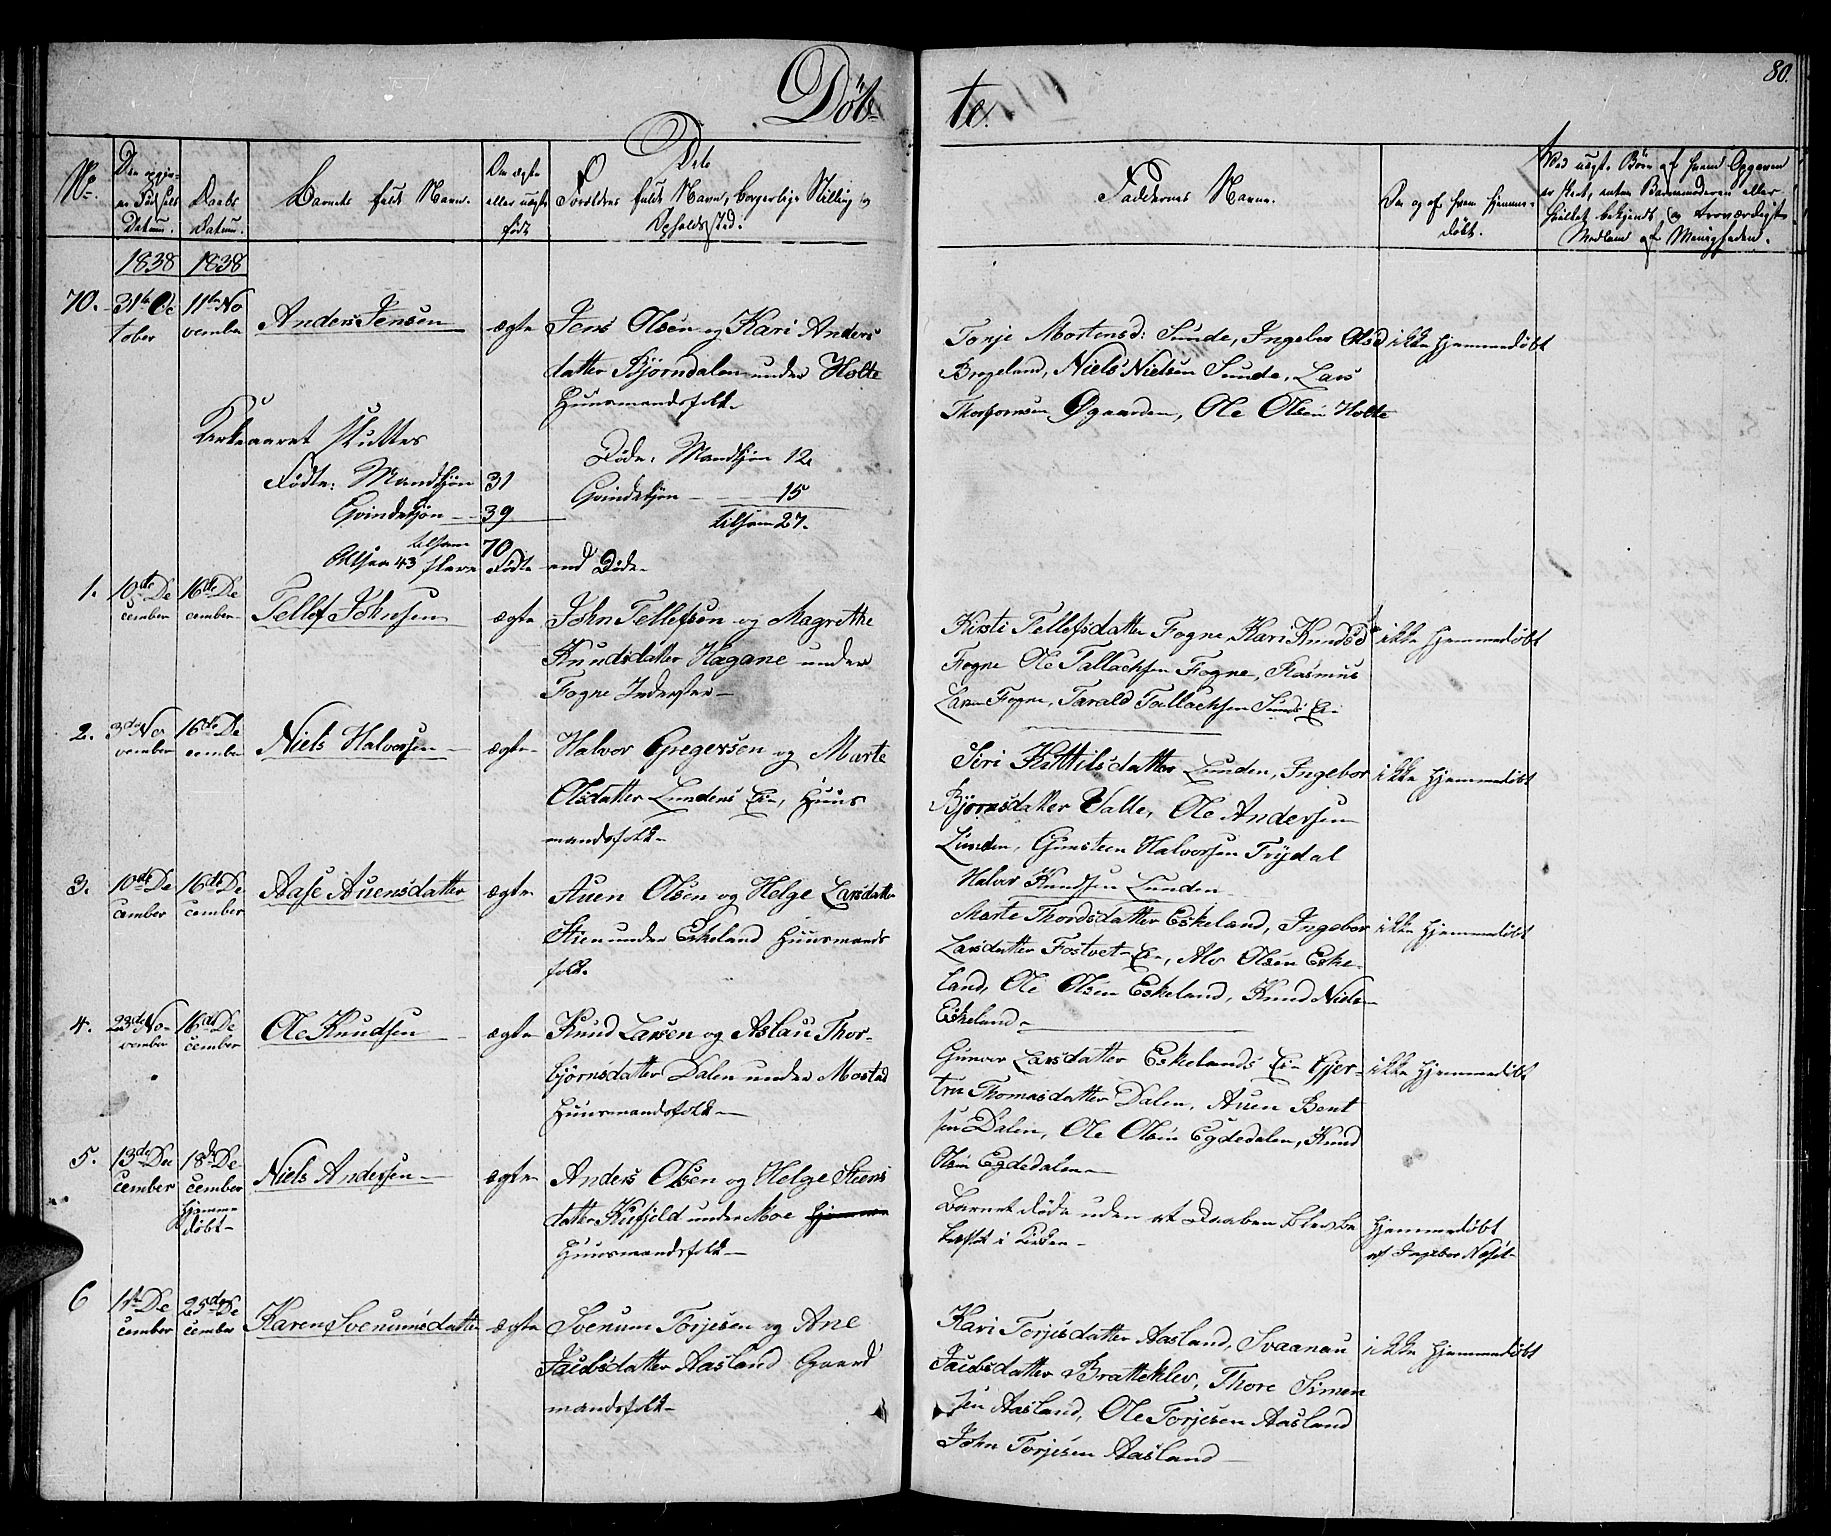 Döb-
te.
80.
No.
Den
Datum.
Daabs
Datum.
Barnets fulde Navn.
Om ægte
eller uægte
født
Forældres fulde Navn, borgerlige Stilling og
Opholdssted.
Faddernes Navne.
Om og af hvem hjemme-
døbt.
Ved uægt. Börn af hvem Opgaven
er skeet, enten Barnemoderen eller
hvilket bekjendt og troværdigt
Medlem af Menigheden.
1838 1838
70. 31te Oc
tober
11te No
vember
Anders Jensen
ægte
Jens Olsen og Kari Anders
datter Bjørndalen under Holte
Huusmandsfolk
Tonje Mortensd: Sunde, Ingebor Olsd
Bregeland, Niels Nielsen Sunde, Lars
Thorbornsen Øgaarden, Ole Olsen Holte
ikke hjemmedøbt
Kirkeaaret sluttes
Fødte: Mandkjøn 31
Qvindekjøn 39
tilsam 70
Altsaa 43 flere Fødte end Døde
Døde: Mandkjøn 12
Qvindekjøn 15
tilsam 27.
1. 10de De
cember
16de De
cember
Tellef Johnsen
ægte
John Tellefsen og Magrethe
Knudsdatter Hagane under
Fogne Inderster
Kirsti Tellefsdatter Fogne, Kari Knudsd
Fogne Ole Tallachsen Fogne, Rasmus
Larsen Fogne, Tarald Tallachsen Sunds Ei
ikke hjemmedøbt
2. 3die No
vember
16de De
cember
Niels Halvorsen
ægte
Halvor Gregersen og Marte
Olsdatter Lundens Ei-, Huus
mandsfolk
Siri Kittilsdatter Lunden, Ingebor
Bjørnsdatter Valle, Ole Andersen
Lunden, Gunsteen Halvorsen Trydal
Halvor Knudsen Lunden
ikke hjemmedøbt
3. 10de De
cember
16de De
cember
Aase Auensdatter
ægte
Auen Olsen og Helge Larsdatter
Stien under Eskeland Huusmands
folk
Marte Thordsdatter Eskeland, Ingebor
Larsdatter Fostvet-Ei-, Alv Olsen Eske-
land, Ole Olsen Eskeland, Knud Niels
Eskeland
ikke hjemmedøbt
4. 23de No-
vember
16de De
cember
Ole Knudsen
ægte
Knud Larsen og Aslau Thor-
bjørnsdatter Dalen under Mostad
Huusmandsfolk
Gunvor Larsdatter Eskelands Ei- Gjer-
tru Thomasdatter Dalen, Auen Bent
sen Dalen, Ole Olsen Egdedalen, Knud
Olsen Egdedalen
ikke hjemmedøbt
5. 13de De
cember
18de De
cember
hjemme
døbt
Niels Andersen
ægte
Anders Olsen og Helge Steens
datter under Moe
Huusmandsfolk
Barnet døde uden at Daaben blev be
kræftet i Kirken
Hjemmedøbt
af Ingebor
6 1ste De
cember
25de De
cember
Karen Svenumsdatter
ægte
Svenum Torjesen og Ane
Jacobsdatter Aasland Gaard
mandsfolk
Kari Torjesdatter Aasland, Svaanau
Jacobsdatter Bratteklev, Thore Simen
sen Aasland, Ole Torjesen Aasland
John Torjesen Aasland
ikke hjemmedøbt